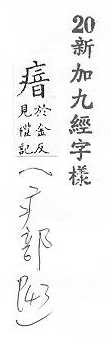 20新加九經字樣
瘖
於金反
見礼記
(疒部
P43)